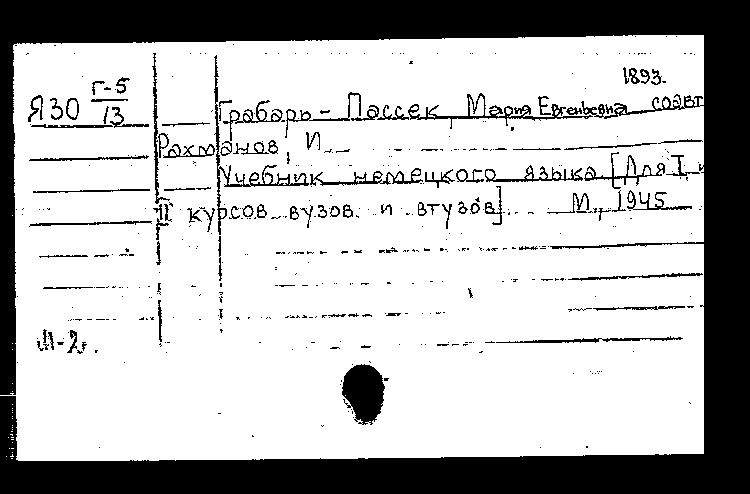 1893.
Я30 Г-5/13
Грабарь-Пассек, Мария Евгеньевна соавт
Рахманов, И.
Учебник немецкого языка [Для I и
II курсов вузов и втузов]. М., 1945